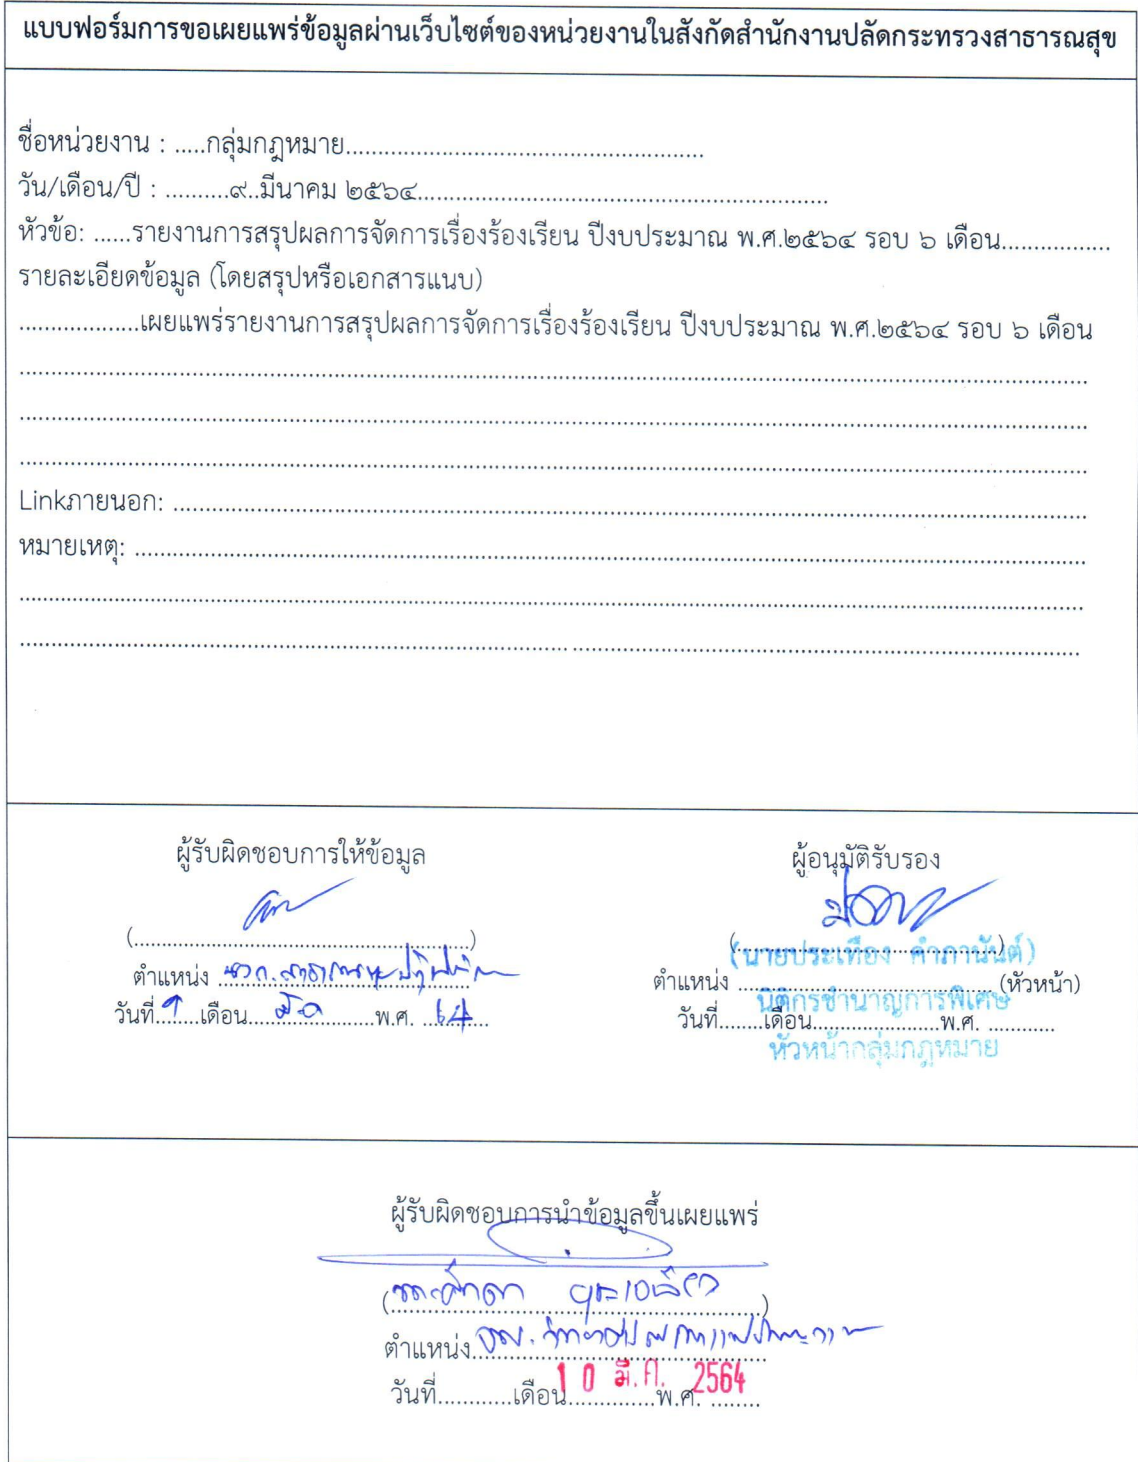 แบบฟอร์มการขอเผยแพร่ข้อมูลผ่านเว็บไซต์ของหน่วยงานในสังกัดสำนักงานปลัดกระทรวงสาธารณสุข
ชื่อหน่วยงาน : .....กลุ่มกฎหมาย....................................................
วัน/เดือน/ปี : ..........๙..มีนาคม ๒๕๖๔............................................................
หัวข้อ: ......รายงานการสรุปผลการจัดการเรื่องร้องเรียน ปีงบประมาณ พ.ศ.๒๕๖๔ รอบ ๖ เดือน................
รายละเอียดข้อมูล (โดยสรุปหรือเอกสารแนบ)
..................เผยแพร่รายงานการสรุปผลการจัดการเรื่องร้องเรียน ปีงบประมาณ พ.ศ.๒๕๖๔ รอบ ๖ เดือน
Linkภายนอก: ....................
หมายเหตุ: ....................
ผู้รับผิดชอบการให้ข้อมูล
(....................)
ตำแหน่ง
วันที่ ๙ เดือน มี.ค พ.ศ. 64
ผู้อนุมัติรับรอง
(นายประเทือง คำภานันต์)
ตำแหน่ง .................... (หัวหน้า)
นิติกรชำนาญการพิเศษ
วันที่........เดือน....................พ.ศ. ............
หัวหน้ากลุ่มกฎหมาย
ผู้รับผิดชอบการนำข้อมูลขึ้นเผยแพร่
ตำแหน่ง
10 มี.ค. 2564
วันที่............เดือน..............พ.ศ. ........